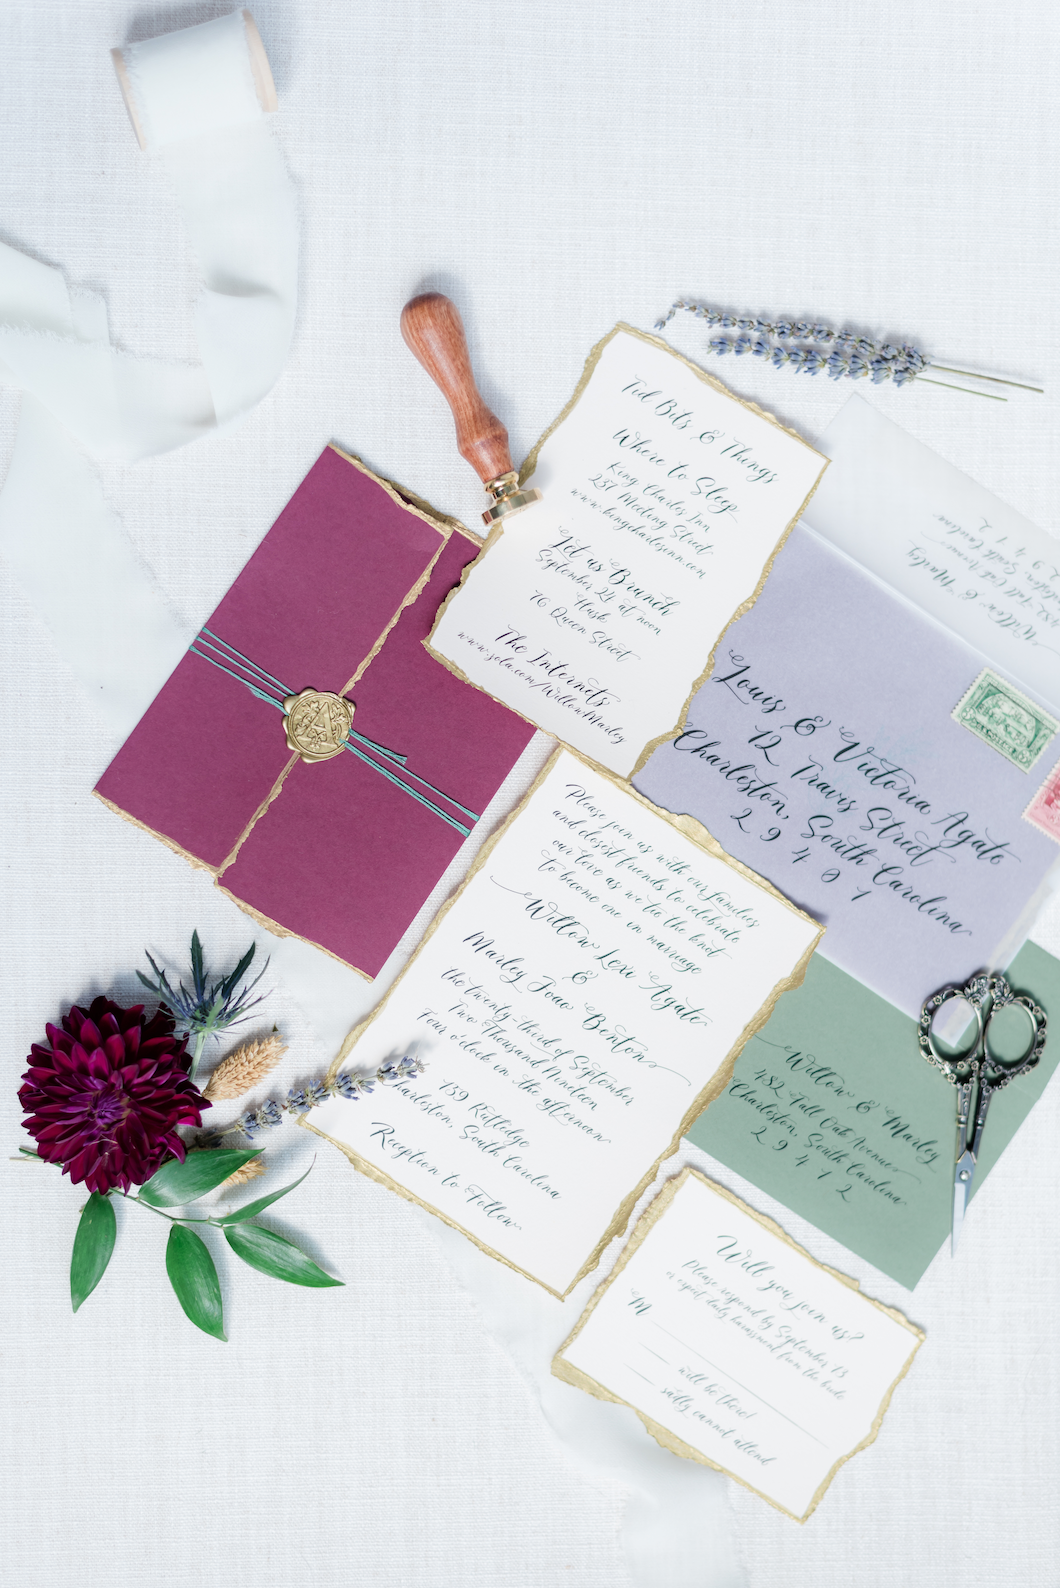 Tid Bits & Things
Where to Sleep
King Charles Inn
237 Meeting Street
www.kingcharlesinn.com
Let us Brunch
September 24 at noon
Husk
76 Queen Street
The Internets
www.zola.com/WillowMarley
Louis & Victoria Agato
12 Travis Street
Charleston, South Carolina
2 9 4 0 7
Please join us with our families
and closest friends to celebrate
our love as we tie the knot
to become one in marriage
Willow Lexi Agato
&
Marley Joao Benton
the twenty third of September
Two Thousand Nineteen
Four o'clock in the afternoon
139 Rutledge
Charleston, South Carolina
Reception to Follow
Willow & Marley
482 Tall Oak Avenue
Charleston, South Carolina
2 9 4 1 2
Will you join us?
Please respond by September 13
or expect daily harassment from the bride
M
will be there!
sadly cannot attend